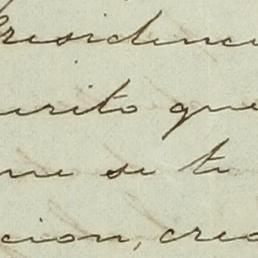 residenci
urito que
me se te
cion, crea